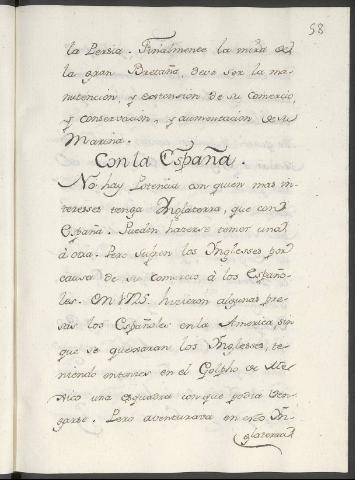 58
la Persia. Finalmente la mira de
la gran Bretaña, deve ser la ma-
nutencion, y extension de su comercio,
y conservacion, y aumentacion de su
Marina.
Con la España.
No hay Potencia con quien mas in-
teresses tenga Inglaterra, que con
España. Pueden hacerse temor una
à otra. Pero sufren los Inglesses por
causa de su comercio à los Españo-
les. En 1725. hizieron algunas pre-
sas los Españoles en la America sin
que se quexaran los Inglesses, te-
niendo entonces en el Golpho de Me-
xico una esquadra con que podia ven-
garse. Pero aventurava en esto In-
glaterra